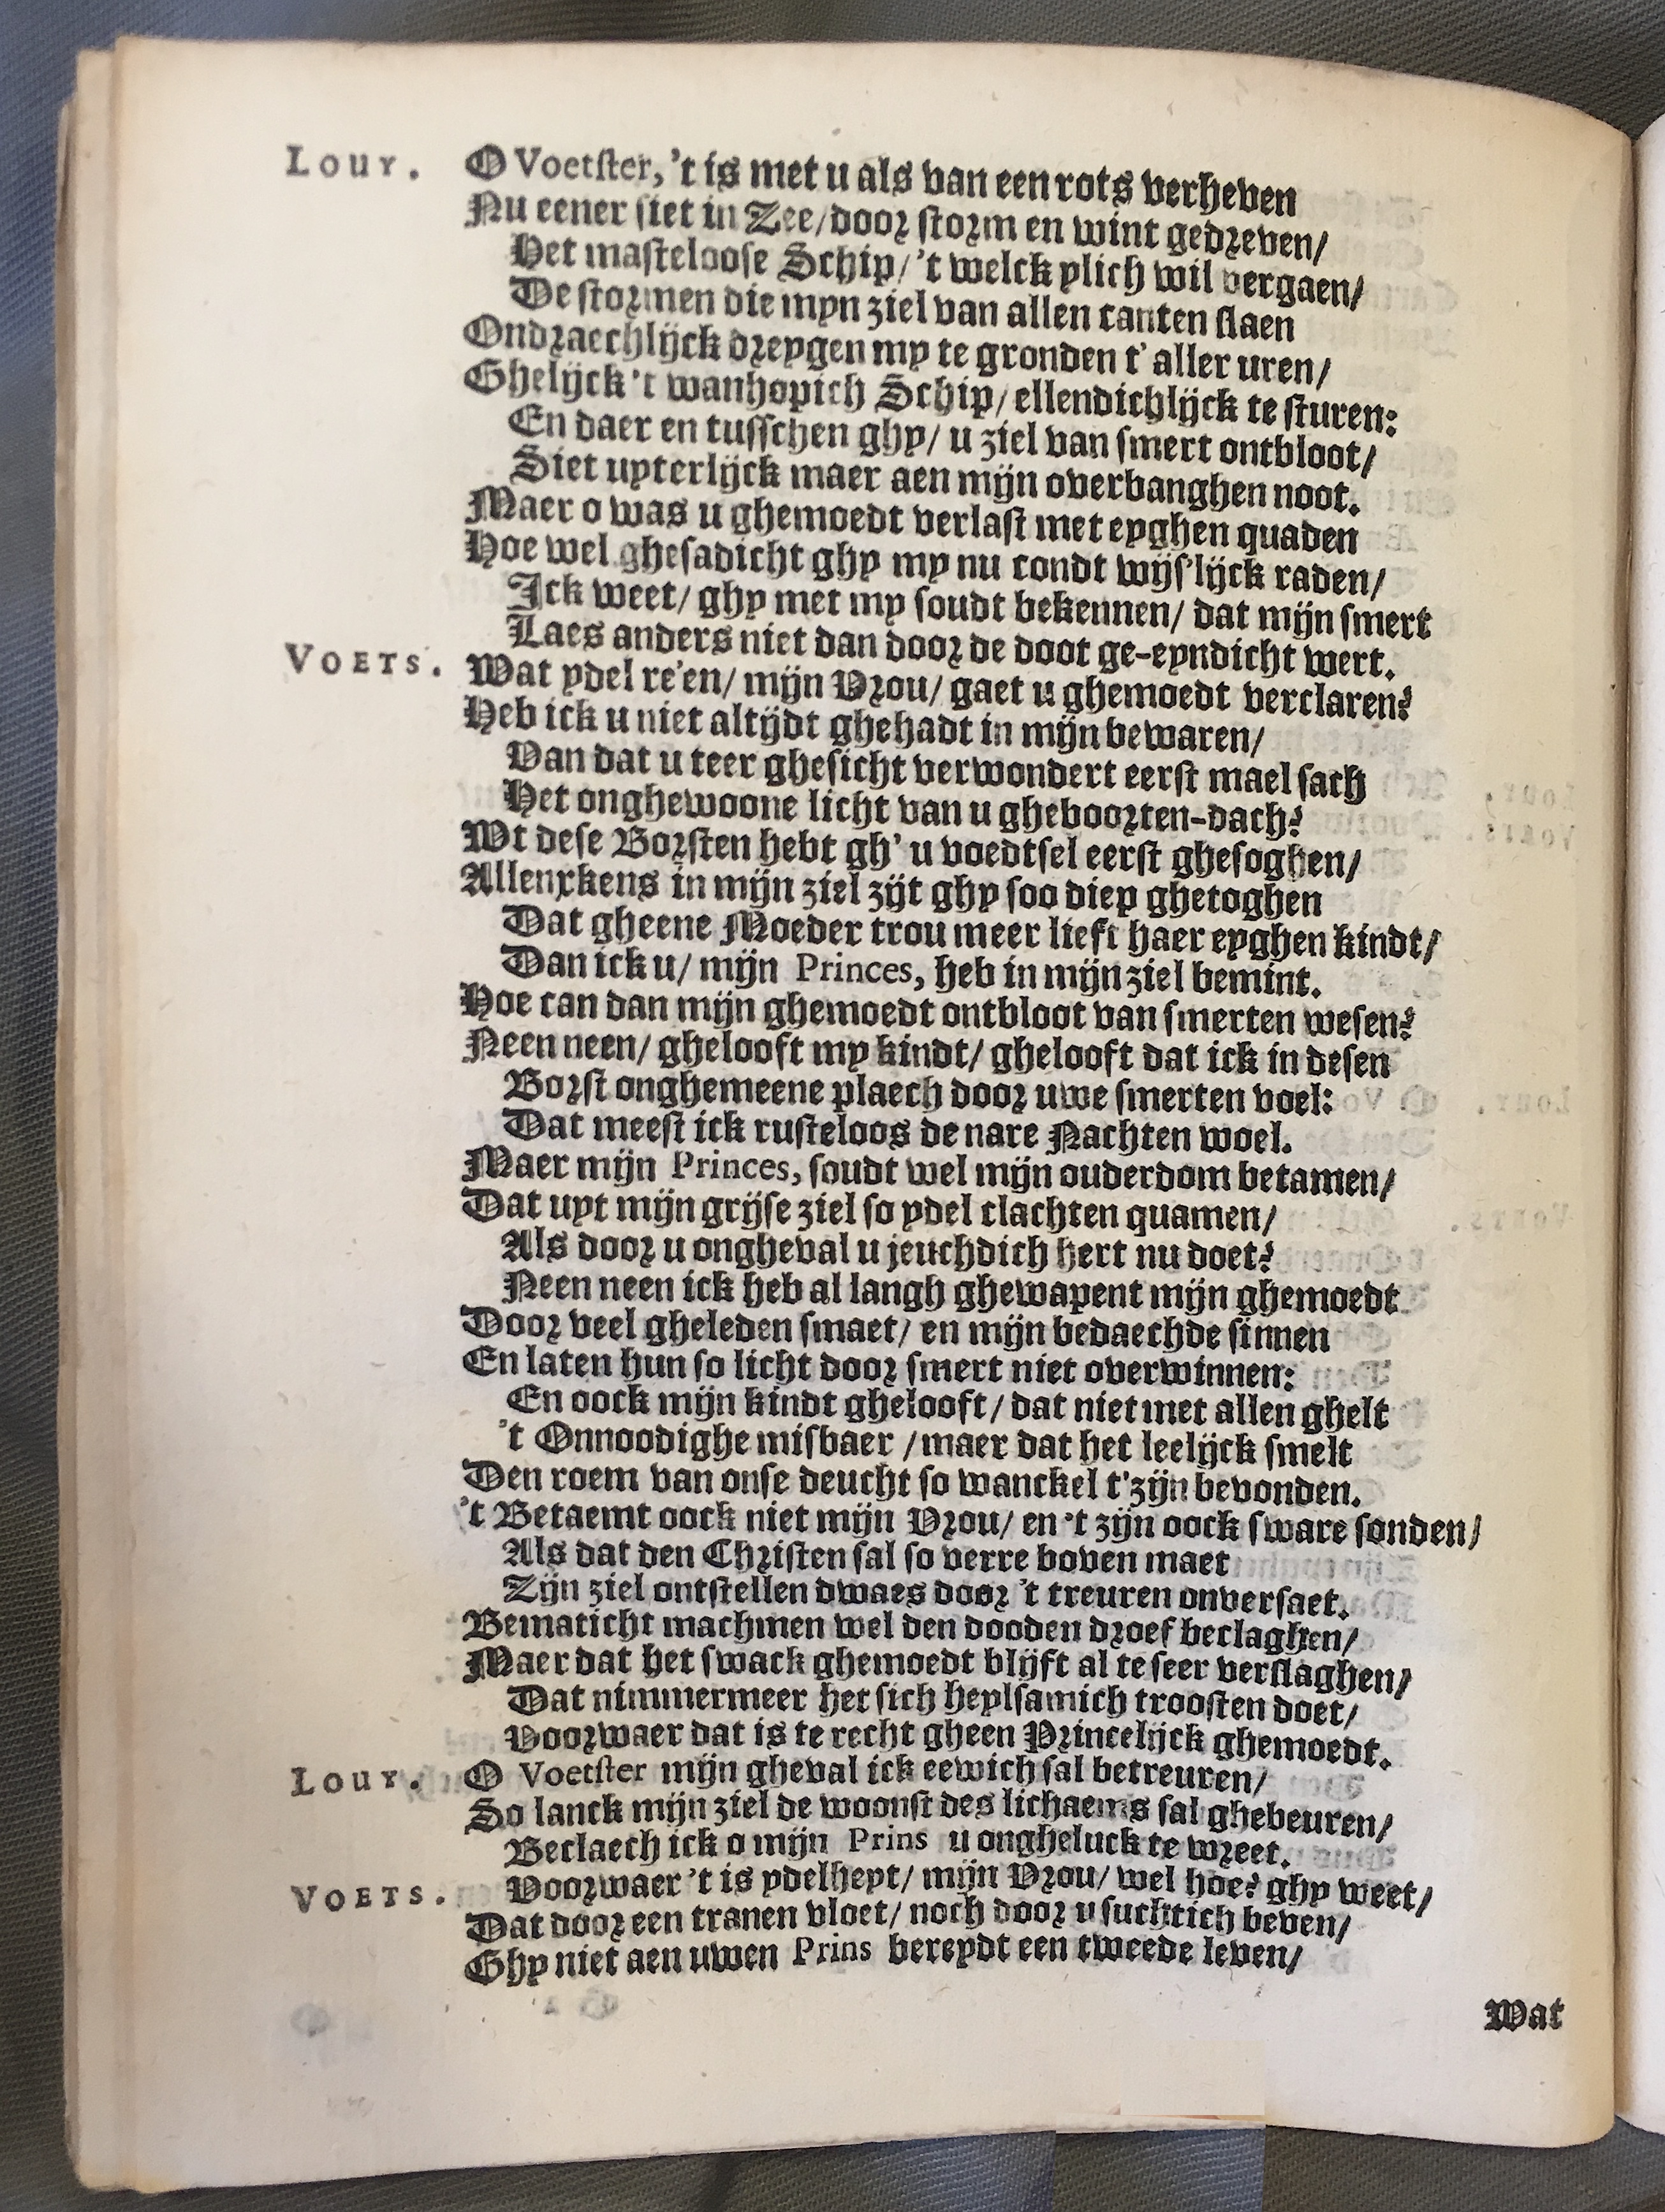 Louy. O Voetster, 't is met u als van een rots verheven
Nu eener siet in Zee/ door storm en wint gedreven/
Het masteloose Schip/ 't welck ylich wil vergaen/
De stormen die myn ziel van allen canten slaen
Ondraechlijck dreygen my te gronden t' aller uren/
Ghelijck 't wanhopich Schip/ ellendichlijck te sturen:
En daer en tusschen ghy/ u ziel van smert ontbloot/
Siet uyterlijck maer aen mijn overbanghen noot.
Maer o was u ghemoedt verlast met eyghen quaden
Hoe wel ghesadicht ghy my nu condt wijs'lijck raden/
Ick weet/ ghy met my soudt bekennen/ dat mijn smert
Laes anders niet dan door de doot ge-eyndicht wert.
Voets. Wat ydel re'en/ mijn Vrou/ gaet u ghemoedt verclaren?
Heb ick u niet altijdt ghehadt in mijn bewaren/
Van dat u teer ghesicht verwondert eerst mael sach
Het onghewoone licht van u gheboorten-dach?
Wt dese Borsten hebt gh' u voedtsel eerst ghesoghen/
Allenxkens in mijn ziel zijt ghy soo diep ghetoghen
Dat gheene Moeder trou meer lieft haer eyghen kindt/
Dan ick u/ mijn Princes, heb in mijn ziel bemint.
Hoe can dan mijn ghemoedt ontbloot van smerten wesen?
Neen neen/ ghelooft my kindt/ ghelooft dat ick in desen
Borst onghemeene plaech door uwe smerten voel:
Dat meest ick rusteloos de nare Nachten woel.
Maer mijn Princes, soudt wel mijn ouderdom betamen/
Dat uyt mijn grijse ziel so ydel clachten quamen/
Als door u ongheval u jeuchdich hert nu doet?
Neen neen ick heb al langh ghewapent mijn ghemoedt
Door veel gheleden smaet/ en mijn bedaechde sinnen
En laten hun so licht door smert niet overwinnen:
En oock mijn kindt ghelooft/ dat niet met allen ghelt
't Onnoodighe misbaer/ maer dat het leelijck smelt
Den roem van onse deucht so wanckel t'zijn bevonden.
't Betaemt oock niet mijn Vrou/ en 't zijn oock sware sonden/
Als dat den Christen sal so verre boven maet
Zijn ziel ontstellen dwaes door 't treuren onversaet.
Bematicht machmen wel den dooden droef beclaghen/
Maer dat het swack ghemoedt blijft al te seer verslaghen/
Dat nimmermeer het sich heylsamich troosten doet/
Voorwaer dat is te recht gheen Princelijck ghemoedt.
Louy. O Voetster mijn gheval ick eewich sal betreuren/
So lanck mijn ziel de woonst des lichaems sal ghebeuren/
Beclaech ick o mijn Prins u ongheluck te wreet.
Voets. Voorwaer 't is ydelheyt/ mijn Vrou/ wel hoe? ghy weet/
Dat door een tranen vloet/ noch door u suchtich beven/
Ghy niet aen uwen Prins bereydt een tweede leven/
Wat